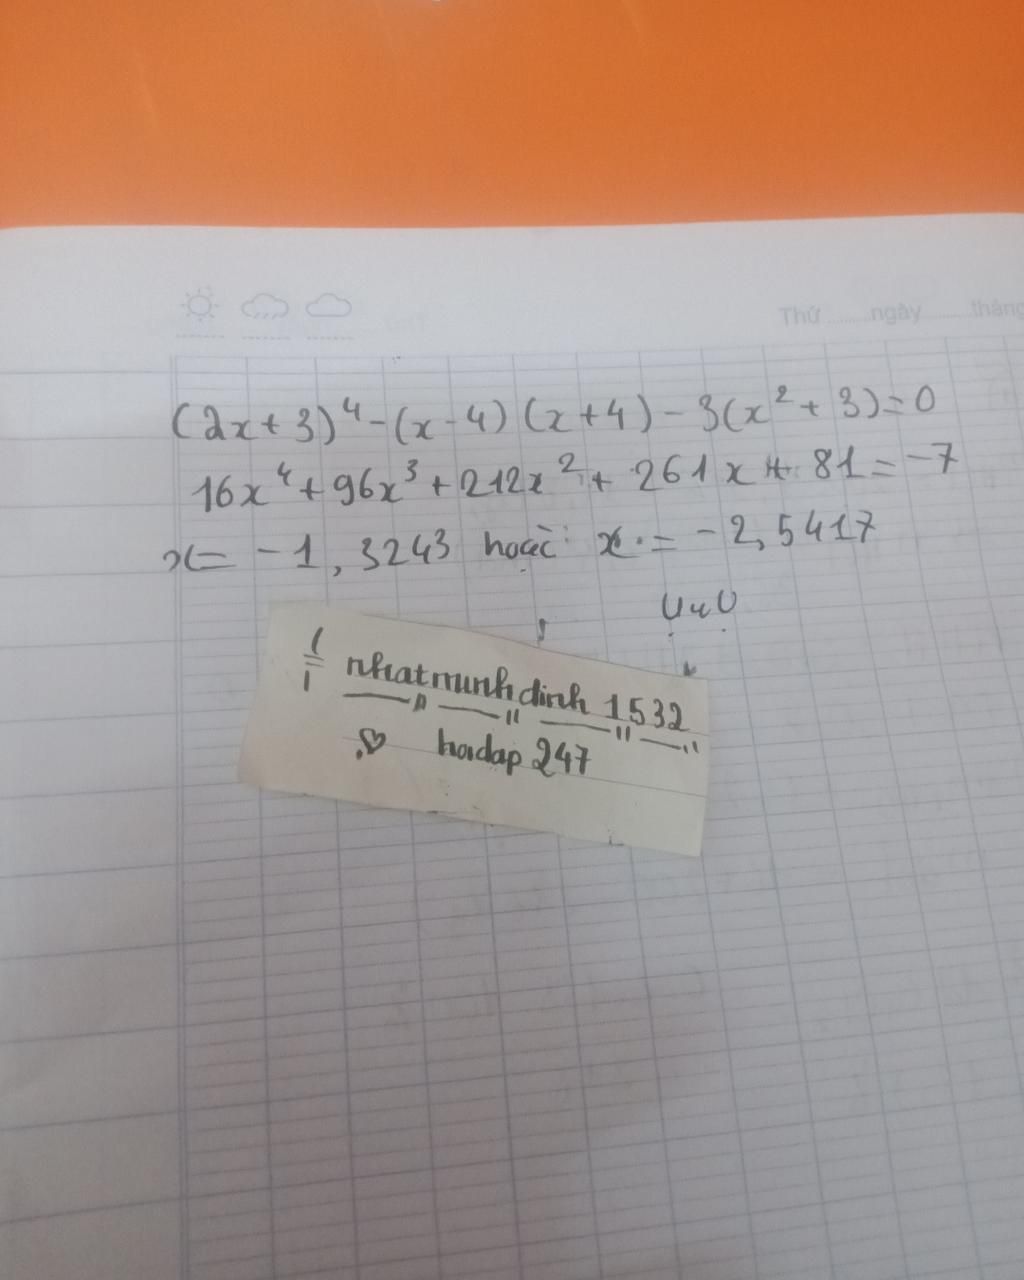 Thứ ........ngày ........tháng
(2x+3)⁴-(x-4)(x+4)-3(x²+3)=0
16x⁴+96x³+212x²+261x+81=-7
x=-1,3243 hoặc x=-2,5417
UuU
nhatminhdinh 1532
hoidap 247